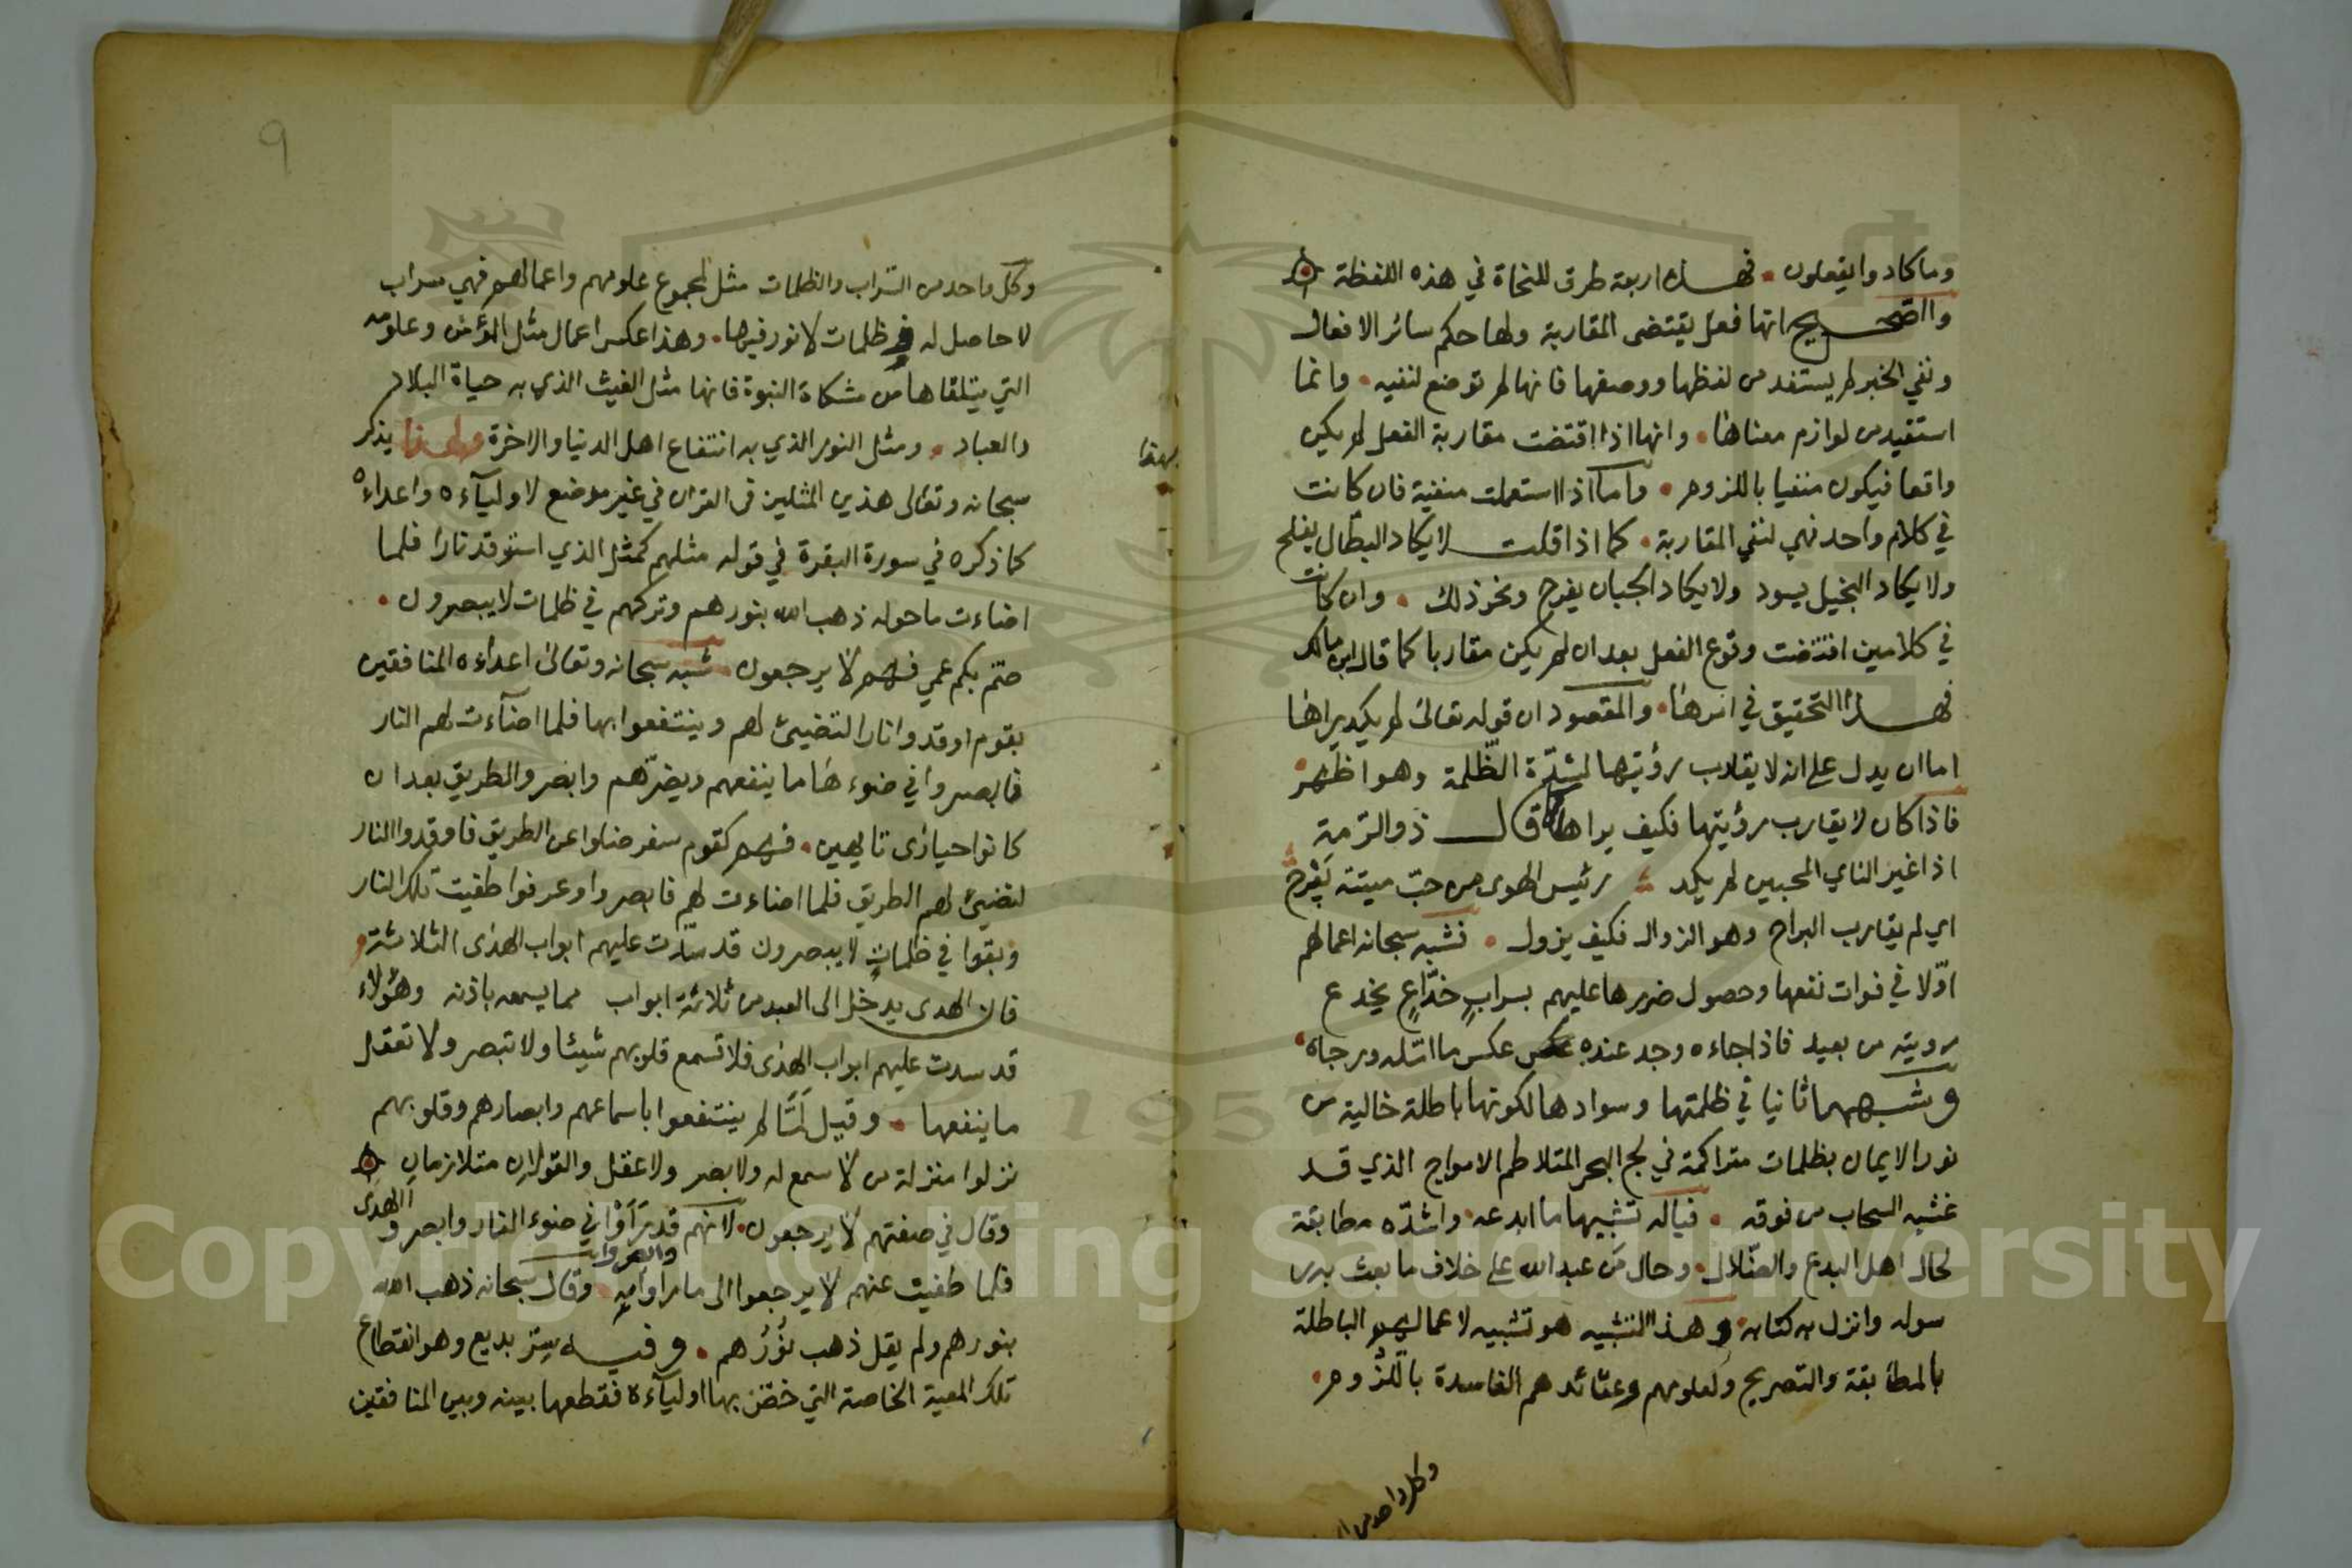 وما كادوا يفعلون • فهذه اربعة طرق للنحاة في هذه اللفظة
والصحيح انها فعل يقتضى المقاربة ولها حكم سائر الافعال
ونفي الخبر لم يستفد من لفظها ووصفها فانها لم توضع لنفيه • وانما
استفيد من لوازم معناها • وانها اذا اقتضت مقاربة الفعل لم يكن
واقعا فيكون منفيا باللزوم • واما اذا استعملت منفية فان كانت
في كلام واحد فهي لنفي المقاربة • كما اذا قلت لا يكاد البطال يفلح
ولا يكاد البخيل يسود ولا يكاد الجبان يفرح ونحو ذلك • وان كانت
في كلامين اقتضت وقوع الفعل بعد ان لم يكن مقاربا كما قال ابن مالك
فهذا التحقيق في امرها • والمقصود ان قوله تعالى لم يكد يراها
اما ان يدل على انه لا يقارب رؤيتها لشدّة الظّلمة وهو اظهر
فاذا كان لا يقارب رؤيتها فكيف يراها قال ذو الرّمة
اذا غير الناي المحبين لم يكد رئيس الهوى من حبّ ميتة يَبْرح
اي لم يقارب البراح وهو الزوال فكيف يزول • فشبه سبحانه اعمالهم
اوّلا في فوات نفعها وحصول ضررها عليهم بسرابٍ خدّاعٍ يخدع
رويته من بعيد فاذا جاءه وجد عنده عكس ما امّله ورجاه
وشبهها ثانيا في ظلمتها وسوادها لكونها باطلة خالية من
نور الايمان بظلمات متراكمة في لجج البحر المتلاطم الامواج الذي قد
غشيه السحاب من فوقه • فياله تشبيها ما ابدعه • واشدّه مطابقة
لحال اهل البدع والضّلال • وحال مَن عبد الله على خلاف ما بعث به ر
سوله وانزل به كتابه • وهذا التشبيه هو تشبيه لاعمالهم الباطلة
بالمطابقة والتصريح ولعلومهم وعقائدهم الفاسدة باللّزوم •
وكل واحد من
9
وكل واحد من السّراب والظلمات مثل لمجموع علومهم واعمالهم فهي سراب
لا حاصل له وظلمات لا نور فيها • وهذا عكس اعمال مثل المؤمن وعلومه
التي يتلقاها من مشكاة النبوة فانها مثل الغيث الذي به حياة البلاد
والعباد • ومثل النور الذي به انتفاع اهل الدنيا والاخرة ولهذا يذكر
بهذا
سبحانه وتعالى هذين المثلين فى القران في غير موضع لاوليآءه واعداءه
كما ذكره في سورة البقرة في قوله مثلهم كمثل الذي استوقد نارا فلما
اضاءت ما حوله ذهب الله بنورهم وتركهم في ظلمات لا يبصرون •
صمّ بكم عمي فهم لا يرجعون • شبه سبحانه وتعالى اعداءه المنافقين
بقوم اوقدوا نارا لتضيئ لهم وينتفعوا بها فلما اضآءت لهم النار
فابصروا في ضوءها ما ينفعهم ويضرّهم وابصروا الطريق بعد ان
كانوا حيارى تايهين • فهم كقوم سفر ضلوا عن الطريق فاوقدوا النار
لتضيئ لهم الطريق فلما اضاءت لهم فابصروا وعرفوا طفيت تلك النار
وبقوا في ظلماتٍ لا يبصرون قد سدّت عليهم ابواب الهدى الثلاثة
فان الهدى يدخل الى العبد من ثلاثة ابواب مما يسمعه باذنه وهؤلاء
قد سدت عليهم ابواب الهدى فلا تسمع قلوبهم شيئا ولا تبصر ولا تعقل
ما ينفعها • وقيل لَمَّا لم ينتفعوا باسماعهم وابصارهم وقلوبهم
نزلوا منزلة من لا سمع له ولا بصر ولا عقل والقولان متلازمان
وقال في صفتهم لا يرجعون • لانهم قد رَأَوْا في ضوء النار وابصروا الهدى
فلما طفيت عنهم لا يرجعوا الى ما راوا • وقال سبحانه ذهب الله
بنورهم ولم يقل ذهب نُوْرُهم • وفيه سِرّ بديع وهو انقطاع
تلك المعية الخاصة التي خصّ بها اوليآءه فقطعها بينه وبين المنافقين
Copyright © King Saud University
1957